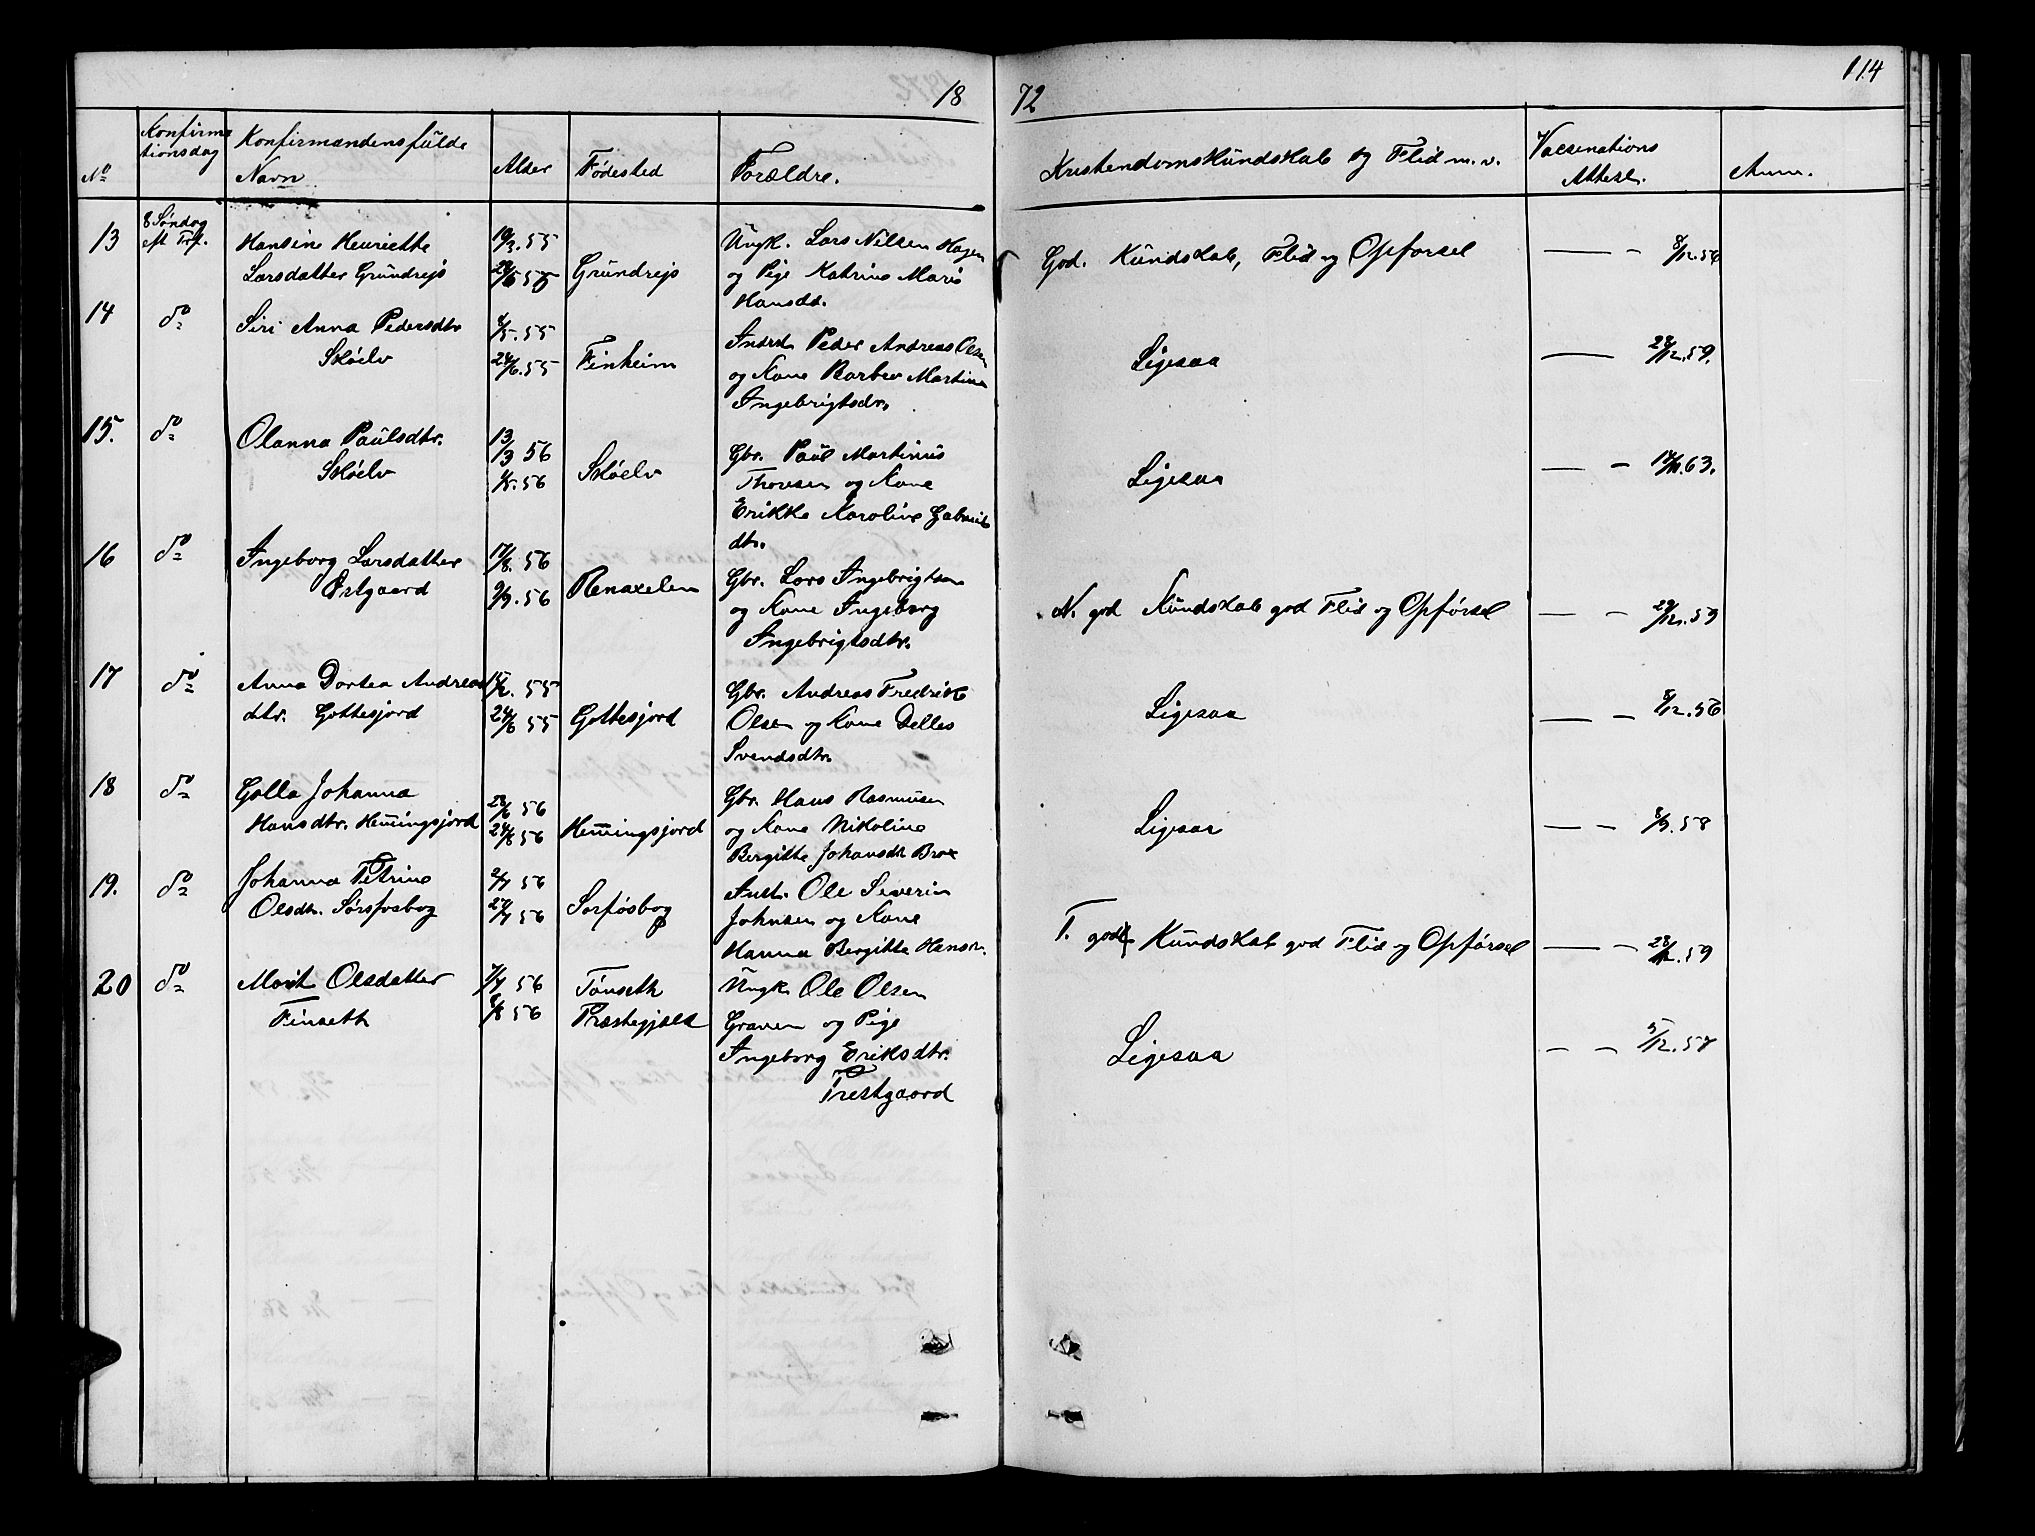 18 72
114
No
Konfirma
tionsdag
Konfirmandens fülde
Navn
Alder
Fødested
Forældre.
Kristendomskündskab og Flid m. v.
Vaccinations
Attest.
Anm.
13
8 Søndag
eft Trf.
Hansine Henriette
Larsdatter Gründrejs
19/3.55
Gründrejs
Üngk. Lars Nilsen Hagen
og Pige Katrine Marie
Hansdt.
God. Kündskab, Flid og Opførsel
— - 8/12.56
14
do
Siri Anna Pedersdtr
Skøelv
4/5.55
24/6.55
Finheim
Indrd Peder Andreas Olsen
og Kone Barbro Martina
Ingebrigtsdr.
Ligesaa
— 28/12.59.
15.
do
Olanna Paulsdtr.
Skøelv
13/3 56
1/5.56
Skøelv
Gbr. Paül Martinüs
Thorsen og Kone
Erikke Karoline Gabriels
dtr.
Ligesaa
— - 63.
16
do
Ingeborg Larsdatter
Østgaard
17/8.56
9/9.56
Renaxelen
Gbr. Lars Ingebrigtsen
og Kone Ingeborg
Ingebrigtsdtr.
N. god Kündskab god Flid og Opførsel
— - 29/12.59
17
do
Anna Dortea Andreas
dtr. Gottesjord
15/2.55
24/6 55
Gottesjord
Gbr. Andreas Fredrik
Olsen og Kone Delles
Svendsdtr.
Ligesaa
— - 8/12.56
18
do
Golla Johanna
Hansdtr. Hemingsjord
23/6 56
24/8 56
Hemingsjord
Gbr. Hans Rasmüsen
og Kone Nikoline
Bergitte Johansdt Brox
Ligesaa
— - 8/9.58
19.
do
Johanna Petrine
Olsdtr. Sørfosbog
2/7 56
27/7 56
Sorføsbog
Inst. Ole Severin
Johnsen og Kone
Hanna Bergitte Hansdr.
T. god Kündskab god Flid og Opførsel
— - 28/12.59
20
do
Marit Olsdatter
Finseth
7/7 56
8/8 56
Tønseth
Præstegjæld
Üngk. Ole Olsen
Graven og Pige
Ingeborg Eriksdtr.
Trestgaard
Ligesaa
— - 5/12.57